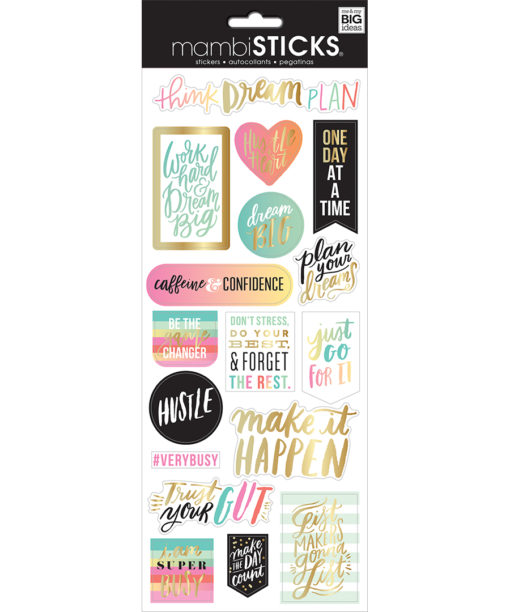 me & my
BIG
ideas
mambiSTICKS®
stickers • autocollants • pegatinas
think DREAM PLAN
Work
hard
& Dream
Big
Hustle
Heart
ONE
DAY
AT
A
TIME
dream
BIG
plan
your
dreams
caffeine & CONFIDENCE
BE THE
game
CHANGER
DON'T STRESS,
DO YOUR
BEST,
& FORGET
THE REST.
just
GO
FOR IT
HUSTLE
make it
HAPPEN
#VERYBUSY
Trust
YOUR GUT
I am
SUPER
BUSY
make
THE DAY
count
List
MAKERS
gonna
List